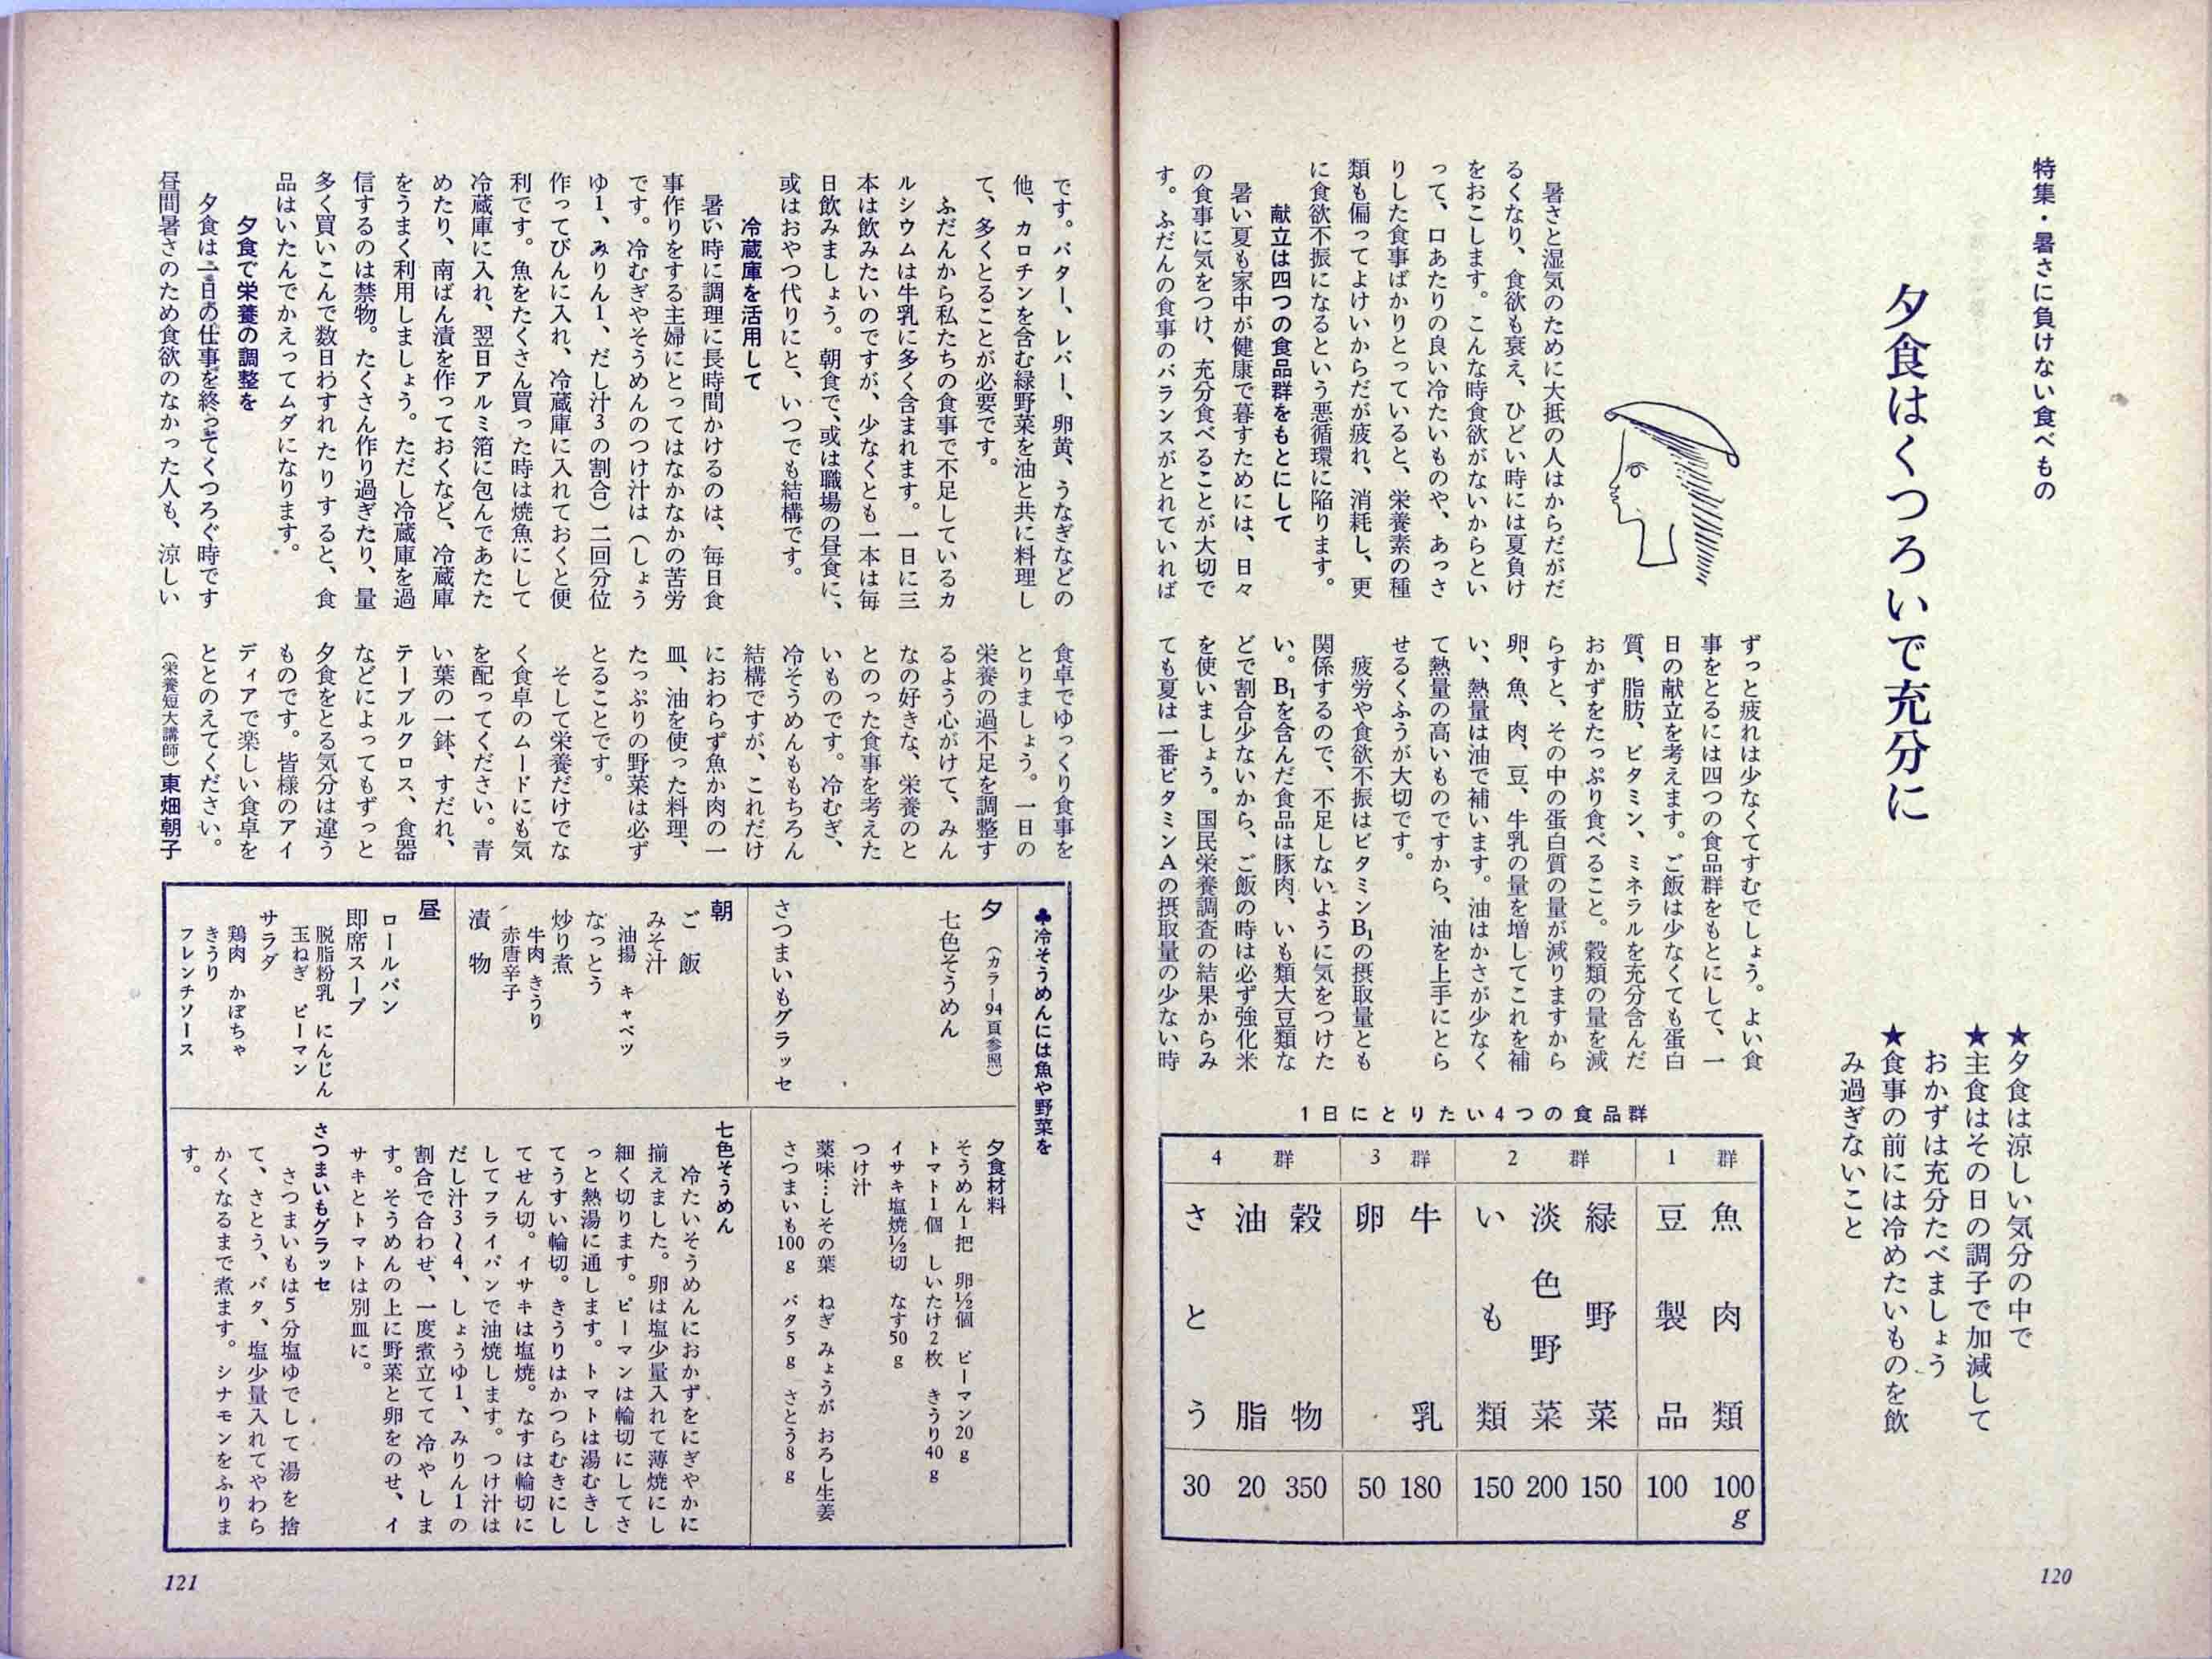 特集・暑さに負けない食べもの
夕食はくつろいで充分に
★夕食は涼しい気分の中で
★主食はその日の調子で加減して
おかずは充分たべましょう
★食事の前には冷めたいものを飲
み過ぎないこと
暑さと湿気のために大抵の人はからだがだ
るくなり、食欲も衰え、ひどい時には夏負け
をおこします。こんな時食欲がないからとい
って、口あたりの良い冷たいものや、あっさ
りした食事ばかりとっていると、栄養素の種
類も偏ってよけいからだが疲れ、消耗し、更
に食欲不振になるという悪循環に陥ります。
献立は四つの食品群をもとにして
暑い夏も家中が健康で暮すためには、日々
の食事に気をつけ、充分食べることが大切で
す。ふだんの食事のバランスがとれていれば
ずっと疲れは少なくてすむでしょう。よい食
事をとるには四つの食品群をもとにして、一
日の献立を考えます。ご飯は少なくても蛋白
質、脂肪、ビタミン、ミネラルを充分含んだ
おかずをたっぷり食べること。穀類の量を減
らすと、その中の蛋白質の量が減りますから
卵、魚、肉、豆、牛乳の量を増してこれを補
い、熱量は油で補います。油はかさが少なく
て熱量の高いものですから、油を上手にとら
せるくふうが大切です。
疲労や食欲不振はビタミンB₁の摂取量とも
関係するので、不足しないように気をつけた
い。B₁を含んだ食品は豚肉、いも類大豆類な
どで割合少ないから、ご飯の時は必ず強化米
を使いましょう。国民栄養調査の結果からみ
ても夏は一番ビタミンAの摂取量の少ない時
1日にとりたい4つの食品群
1群
魚肉類 100g
豆製品 100
2群
緑野菜 150
淡色野菜 200
いも類 150
3群
牛乳 180
卵 50
4群
穀物 350
油脂 20
さとう 30
120
です。バター、レバー、卵黄、うなぎなどの
他、カロチンを含む緑野菜を油と共に料理し
て、多くとることが必要です。
ふだんから私たちの食事で不足しているカ
ルシウムは牛乳に多く含まれます。一日に三
本は飲みたいのですが、少なくとも一本は毎
日飲みましょう。朝食で、或は職場の昼食に、
或はおやつ代りにと、いつでも結構です。
冷蔵庫を活用して
暑い時に調理に長時間かけるのは、毎日食
事作りをする主婦にとってはなかなかの苦労
です。冷むぎやそうめんのつけ汁は（しょう
ゆ1、みりん1、だし汁3の割合）二回分位
作ってびんに入れ、冷蔵庫に入れておくと便
利です。魚をたくさん買った時は焼魚にして
冷蔵庫に入れ、翌日アルミ箔に包んであたた
めたり、南ばん漬を作っておくなど、冷蔵庫
をうまく利用しましょう。ただし冷蔵庫を過
信するのは禁物。たくさん作り過ぎたり、量
多く買いこんで数日わすれたりすると、食
品はいたんでかえってムダになります。
夕食で栄養の調整を
夕食は一日の仕事を終ってくつろぐ時です
昼間暑さのため食欲のなかった人も、涼しい
食卓でゆっくり食事を
とりましょう。一日の
栄養の過不足を調整す
るよう心がけて、みん
なの好きな、栄養のと
とのった食事を考えた
いものです。冷むぎ、
冷そうめんももちろん
結構ですが、これだけ
におわらず魚か肉の一
皿、油を使った料理、
たっぷりの野菜は必ず
とることです。
そして栄養だけでな
く食卓のムードにも気
を配ってください。青
い葉の一鉢、すだれ、
テーブルクロス、食器
などによってもずっと
夕食をとる気分は違う
ものです。皆様のアイ
ディアで楽しい食卓を
ととのえてください。
（栄養短大講師）東畑朝子
♣冷そうめんには魚や野菜を
夕（カラー94頁参照）
七色そうめん
さつまいもグラッセ
朝
ご飯
みそ汁
油揚 キャベツ
なっとう
炒り煮
牛肉 きうり
赤唐辛子
漬物
昼
ロールパン
即席スープ
脱脂粉乳 にんじん
玉ねぎ ピーマン
サラダ
鶏肉 かぼちゃ
きうり
フレンチソース
夕食材料
そうめん1把 卵½個 ピーマン20g
トマト1個 しいたけ2枚 きうり40g
イサキ塩焼½切 なす50g
つけ汁
薬味…しその葉 ねぎ みょうが おろし生姜
さつまいも100g バタ5g さとう8g
七色そうめん
冷たいそうめんにおかずをにぎやかに
揃えました。卵は塩少量入れて薄焼にし
細く切ります。ピーマンは輪切にしてさ
っと熱湯に通します。トマトは湯むきし
てうすい輪切。きうりはかつらむきにし
てせん切。イサキは塩焼。なすは輪切に
してフライパンで油焼します。つけ汁は
だし汁3〜4、しょうゆ1、みりん1の
割合で合わせ、一度煮立てて冷やしま
す。そうめんの上に野菜と卵をのせ、イ
サキとトマトは別皿に。
さつまいもグラッセ
さつまいもは5分塩ゆでして湯を捨
て、さとう、バタ、塩少量入れてやわら
かくなるまで煮ます。シナモンをふりま
す。
121